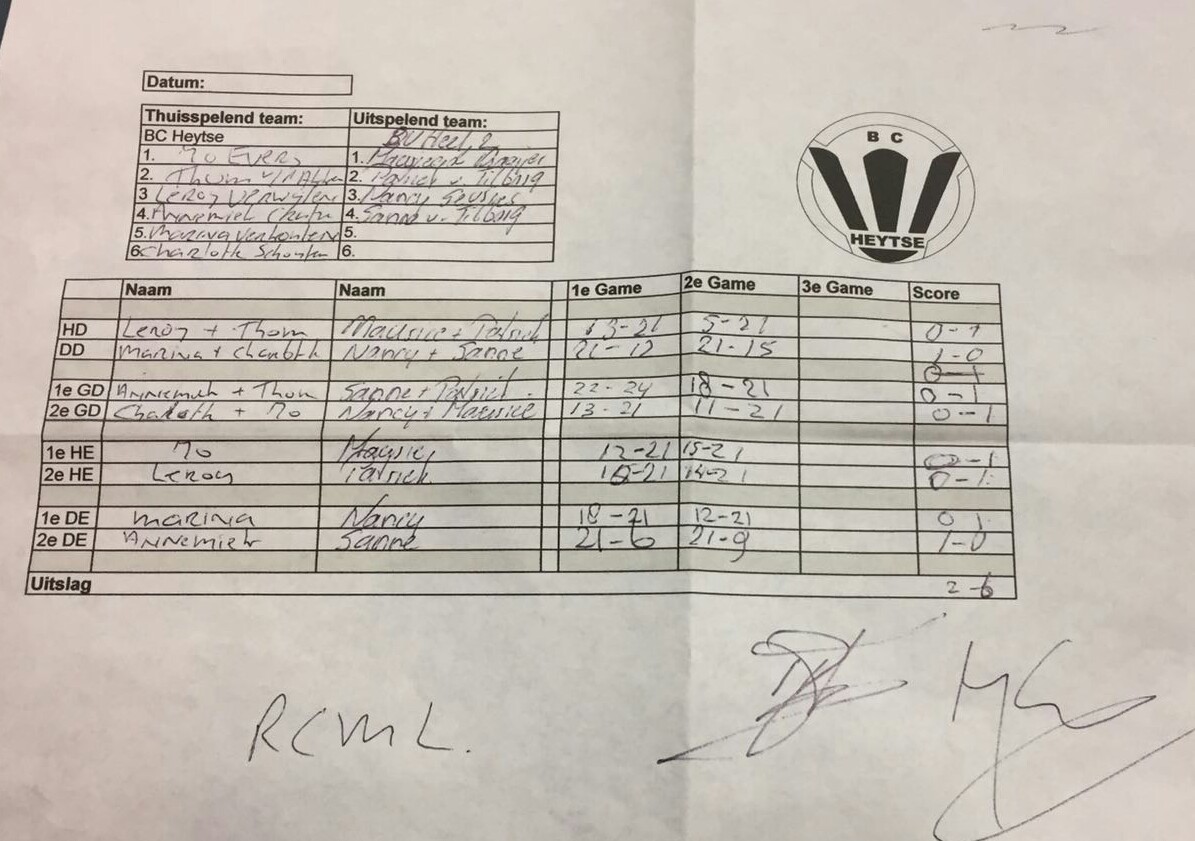 Datum:
Thuisspelend team: Uitspelend team:
BC Heytse BV Heel 2
1. Mo Evers 1.
2. Thom 2. Patrick v. Tilburg
3 Leroy Verwijlen 3. Nancy
4. Annemiek 4. Sanne v. Tilburg
5. Marina Verhoulen 5.
6. Charlotte Schouten 6.
BC
HEYTSE
Naam Naam 1e Game 2e Game 3e Game Score
HD Leroy + Thom Maurice + Patrick 13-21 5-21 0-1
DD Marina + Charloth Nancy + Sanne 21-12 21-15 1-0
0-1
1e GD Annemiek + Thom Sanne + Patrick 22-24 18-21 0-1
2e GD Charloth + Mo Nancy + Maurice 13-21 11-21 0-1
1e HE Mo 12-21 15-21 0-1
2e HE Leroy Patrick 18-21 14-21 0-1
1e DE Marina Nancy 18-21 12-21 0 1
2e DE Annemiek Sanne 21-6 21-9 1-0
Uitslag 2-6
RCML.